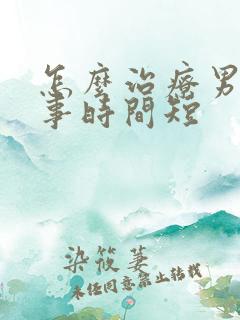 怎麼治療男
事時間短
染筱萋
未任同意禁止转载